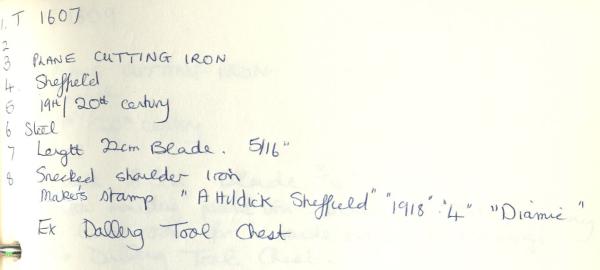 1. T 1607
2
3 PLANE CUTTING IRON
4. Sheffield
5 19th/20th century
6 Steel
7 Length 22cm Blade. 5/16"
8 Snecked shoulder Iron
Maker's stamp "A Hildick Sheffield" "1918" "4" "Diamic"
Ex Dallerg Tool Chest